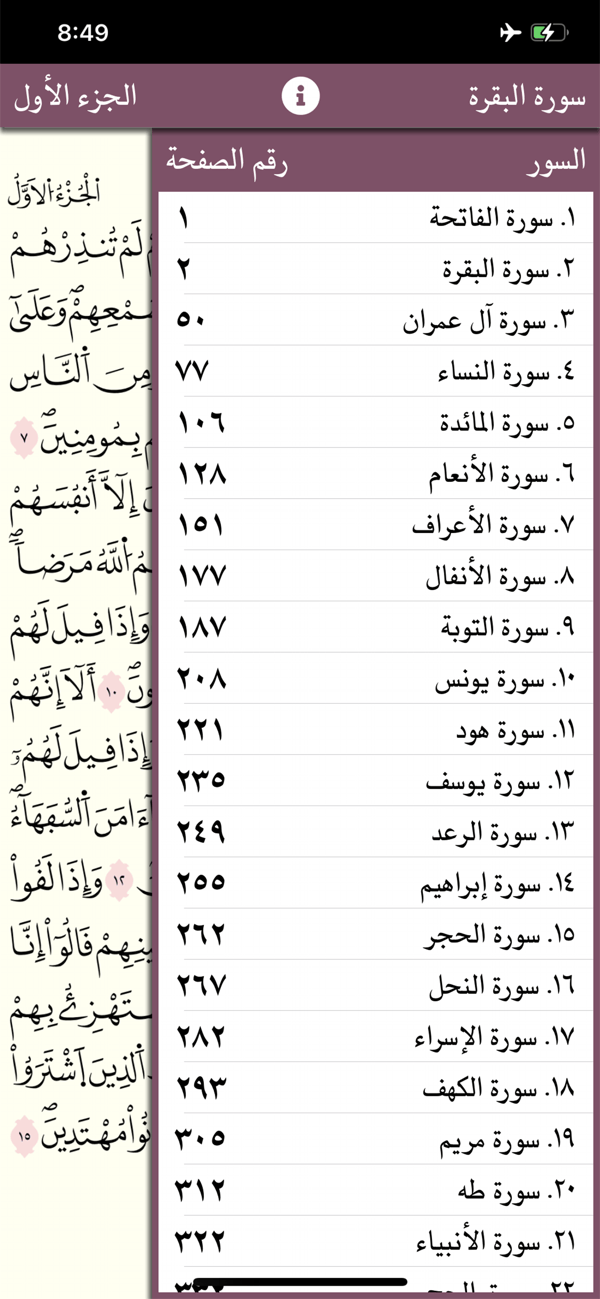 8:49
سورة البقرة
الجزء الأول
السور رقم الصفحة
١. سورة الفاتحة ١
٢. سورة البقرة ٢
٣. سورة آل عمران ٥٠
٤. سورة النساء ٧٧
٥. سورة المائدة ١٠٦
٦. سورة الأنعام ١٢٨
٧. سورة الأعراف ١٥١
٨. سورة الأنفال ١٧٧
٩. سورة التوبة ١٨٧
١٠. سورة يونس ٢٠٨
١١. سورة هود ٢٢١
١٢. سورة يوسف ٢٣٥
١٣. سورة الرعد ٢٤٩
١٤. سورة إبراهيم ٢٥٥
١٥. سورة الحجر ٢٦٢
١٦. سورة النحل ٢٦٧
١٧. سورة الإسراء ٢٨٢
١٨. سورة الكهف ٢٩٣
١٩. سورة مريم ٣٠٥
٢٠. سورة طه ٣١٢
٢١. سورة الأنبياء ٣٢٢
اَلْجُزْءُ اُلَاوَّلُ
لَمْ تُنذِرْهُمْ
وَعَلَىٰٓ
اَ۬لنَّاسِ
بِمُومِنِينَۖ ٧
إِلَّآ أَنفُسَهُمْ
اُ۬للَّهُ مَرَضاٗۖ
وَإِذَا قِيلَ لَهُمْ
١٠ أَلَآ إِنَّهُمْ
قِيلَ لَهُمُۥٓ
ءَامَنَ اَ۬لسُّفَهَآءُۖ
١٢ وَإِذَا لَقُواْ
قَالُوٓاْ إِنَّا
بِهِمْ
اَ۬لذِينَ اَ۪شْتَرَوُاْ
مُهْتَدِينَۖ ١٥